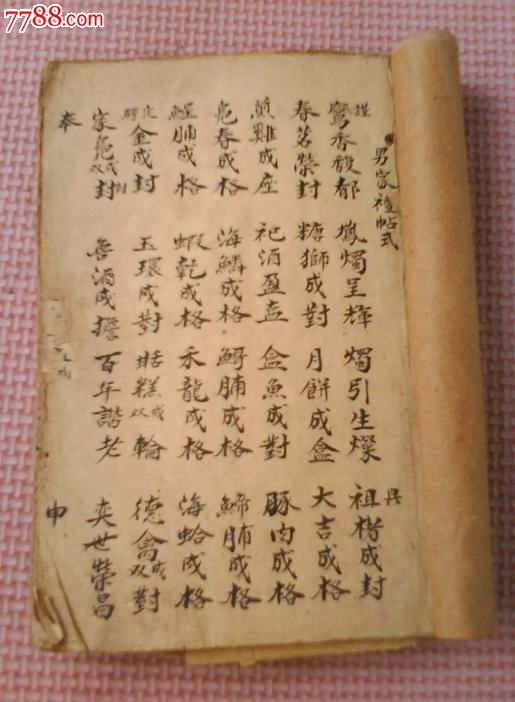 7788.com
男家禮帖式
謹具
鸞香馥郁 鳳燭呈輝 燭引生燦 祖楮成封
春茗榮封 糖獅成對 月餅成盒 大吉成格
煎雞成座 祀酒盈壺 盒魚成對 豚肉成格
春成格 海鱗成格 脯成格 脯成格
脯成格 蝦乾成格 禾龍成格 海蛤成格
聘金成封 玉環成對 糕成双輪 德禽成双對
家成双封 酒成擔 百年諧老 奕世榮昌
奉
申